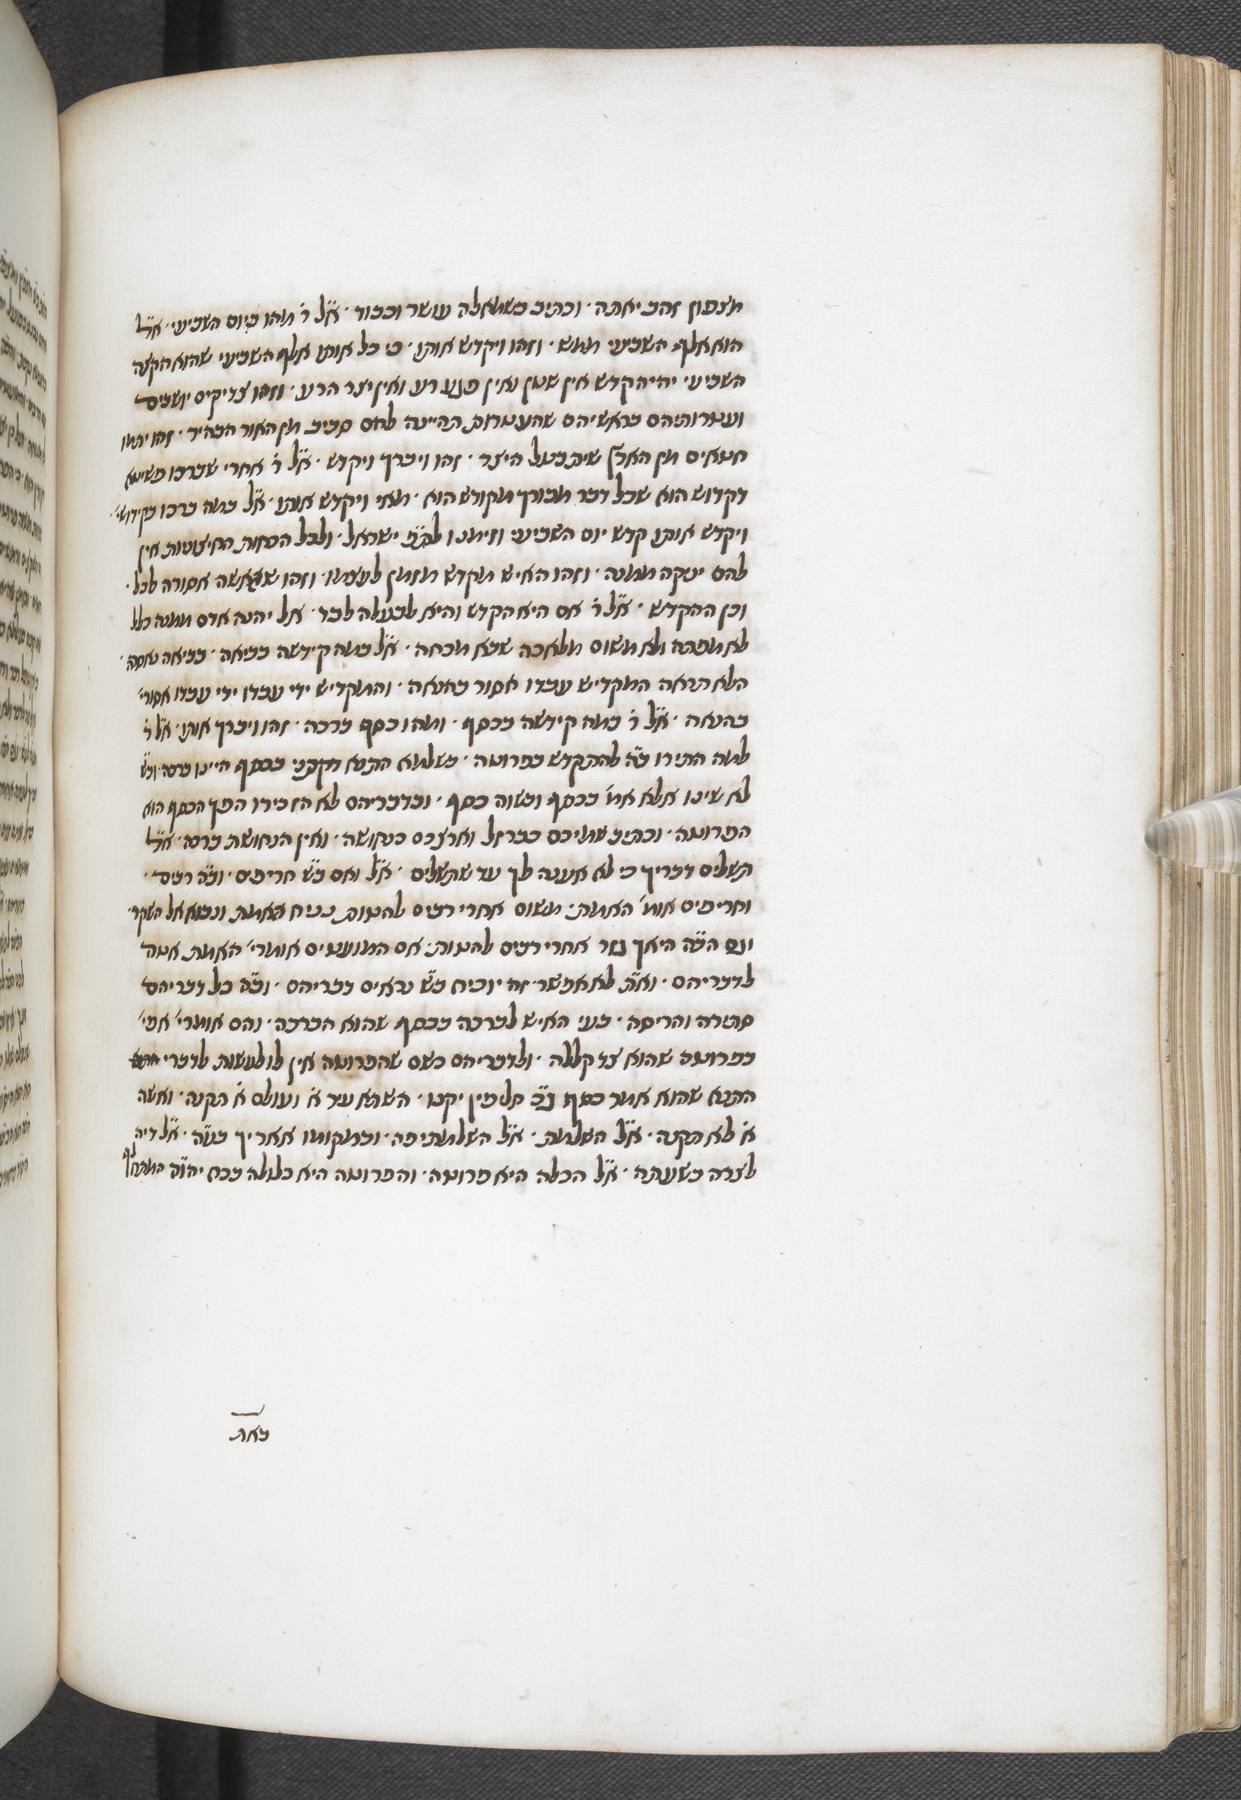 מצפון זהב יאתה · וכתיב בשמאלה עושר וכבוד · א״ל ר׳ מהו ביום השביעי · א״ל
הוא אלף השביעי ממש · וזהו ויקדש אותו · כי כל אותו אלף השביעי שהוא הקצה
השביעי יהיה קדש אין שטן ואין פגע רע ואין יצר הרע · וזהו צדיקים יושבים
ועטרותיהם בראשיהם שהעטרות תהיינה להם סביב מן האור הבהיר · וזהו יתמו
חטאים מן הארץ שיתבטל היצר · זהו ויברך ויקדש · א״ל ר׳ אחרי שברכו פשיטא
דקדוש הוא שכל דבר מבורך מקודש הוא · מאי ויקדש אותו · א״ל במה ברכו בקידוש׳
ויקדש אותו קדש יום השביעי וזימנו לבני ישראל · ולכל הכחות החיצונות אין
להם יניקה ממנה · וזהו האיש מקדש מזומן לעצמו · וזהו שהאשה אסורה לכל ·
וכן ההקדש · א״ל ר׳ אם היא הקדש והיא לבעלה לבד · אל יהנה אדם ממנה כלל
לא מטתה ולא משום מלאכה שבא מכחה · א״ל במה קידשה בביאה · בביאה
הלא תראה המקדיש עבדו אסור בהנאה · והמקדיש ידי עבדו ידי עבדו אסור׳
בהנאה · א״ל ר׳ במה קידשה בכסף · ומהו כסף ברכה · זהו ויברך אותו · א״ל ר׳
למה התירו ב״ה להתקדש בפרוטה · בשלמא התנא בכסף היינו ברכה וב״ש
לא שינו אלא אמ׳ בכסף ובשוה כסף · ובדבריהם לא הזכירו הפך הכסף הוא
הפרוטה · וכתיב שמיכם כברזל וארצכם כנחושה · ואין הנחושת ברכה · א״ל
תשלים דבריך כי לא אענה לך עד שתשלים · א״ל ואם ב״ש חריפים · וב״ה רבים ·
וחריפים אומ׳ האמת · משום אחרי רבים להטות נניח האמת ונבוא אל השקר ·
וגם הב״ה היאך גזר אחרי רבים להטות · אם המועטים אומרי׳ האמת אטה
לדבריהם · וא״ת לא אפשר זה יוכיח ב״ש נראים דבריהם · וב״ה כל דבריהם
סתירה והריסה · בעי האיש לברכה בכסף שהוא הברכה · והם אומרי׳ אפי׳
בפרוטה שהוא צד קללה · ולדבריהם כשם שהפרוטה אין לו לעשות לדברי
התנא שהוא אומר כסף תליסין יקנו · השתא עד א׳ ועולם א׳ תקנה · ואשה
א׳ לא תקנה · א״ל השלמת · א״ל השלמתי פה · ובמקומו אאריך בע״ה · א״ל דיה
לצרה בשעתה · א״ל הכלה היא פרוטה · והפרוטה היא כלולה בכח
באת